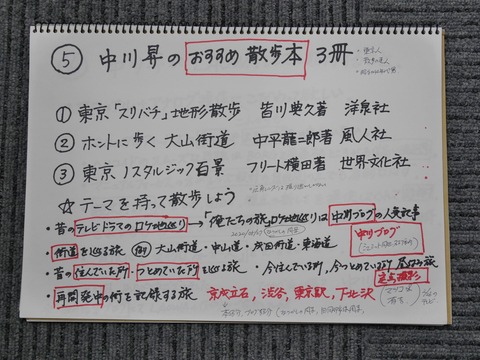 ⑤ 中川昇の おすすめ 散歩本 3冊
① 東京「スリバチ」地形散歩 皆川典久著 洋泉社
② ホントに歩く 大山街道 中平龍二郎著 風人社
③ 東京ノスタルジック百景 フリート横田著 世界文化社
☆ テーマを持って散歩しよう
・昔のテレビドラマのロケ地巡り→「俺たちの旅」ロケ地巡りは 中川ブログの人気記事
中川ブログ
街道を巡る旅 例 大山街道・中山道・成田街道・東海道
・昔の住んでいた所・つとめていた所を巡る旅 ・今住んでいる所、今つとめている所
定点撮影
・再開発中の街を記録する旅 京成立石, 渋谷, 東京駅, 下北沢